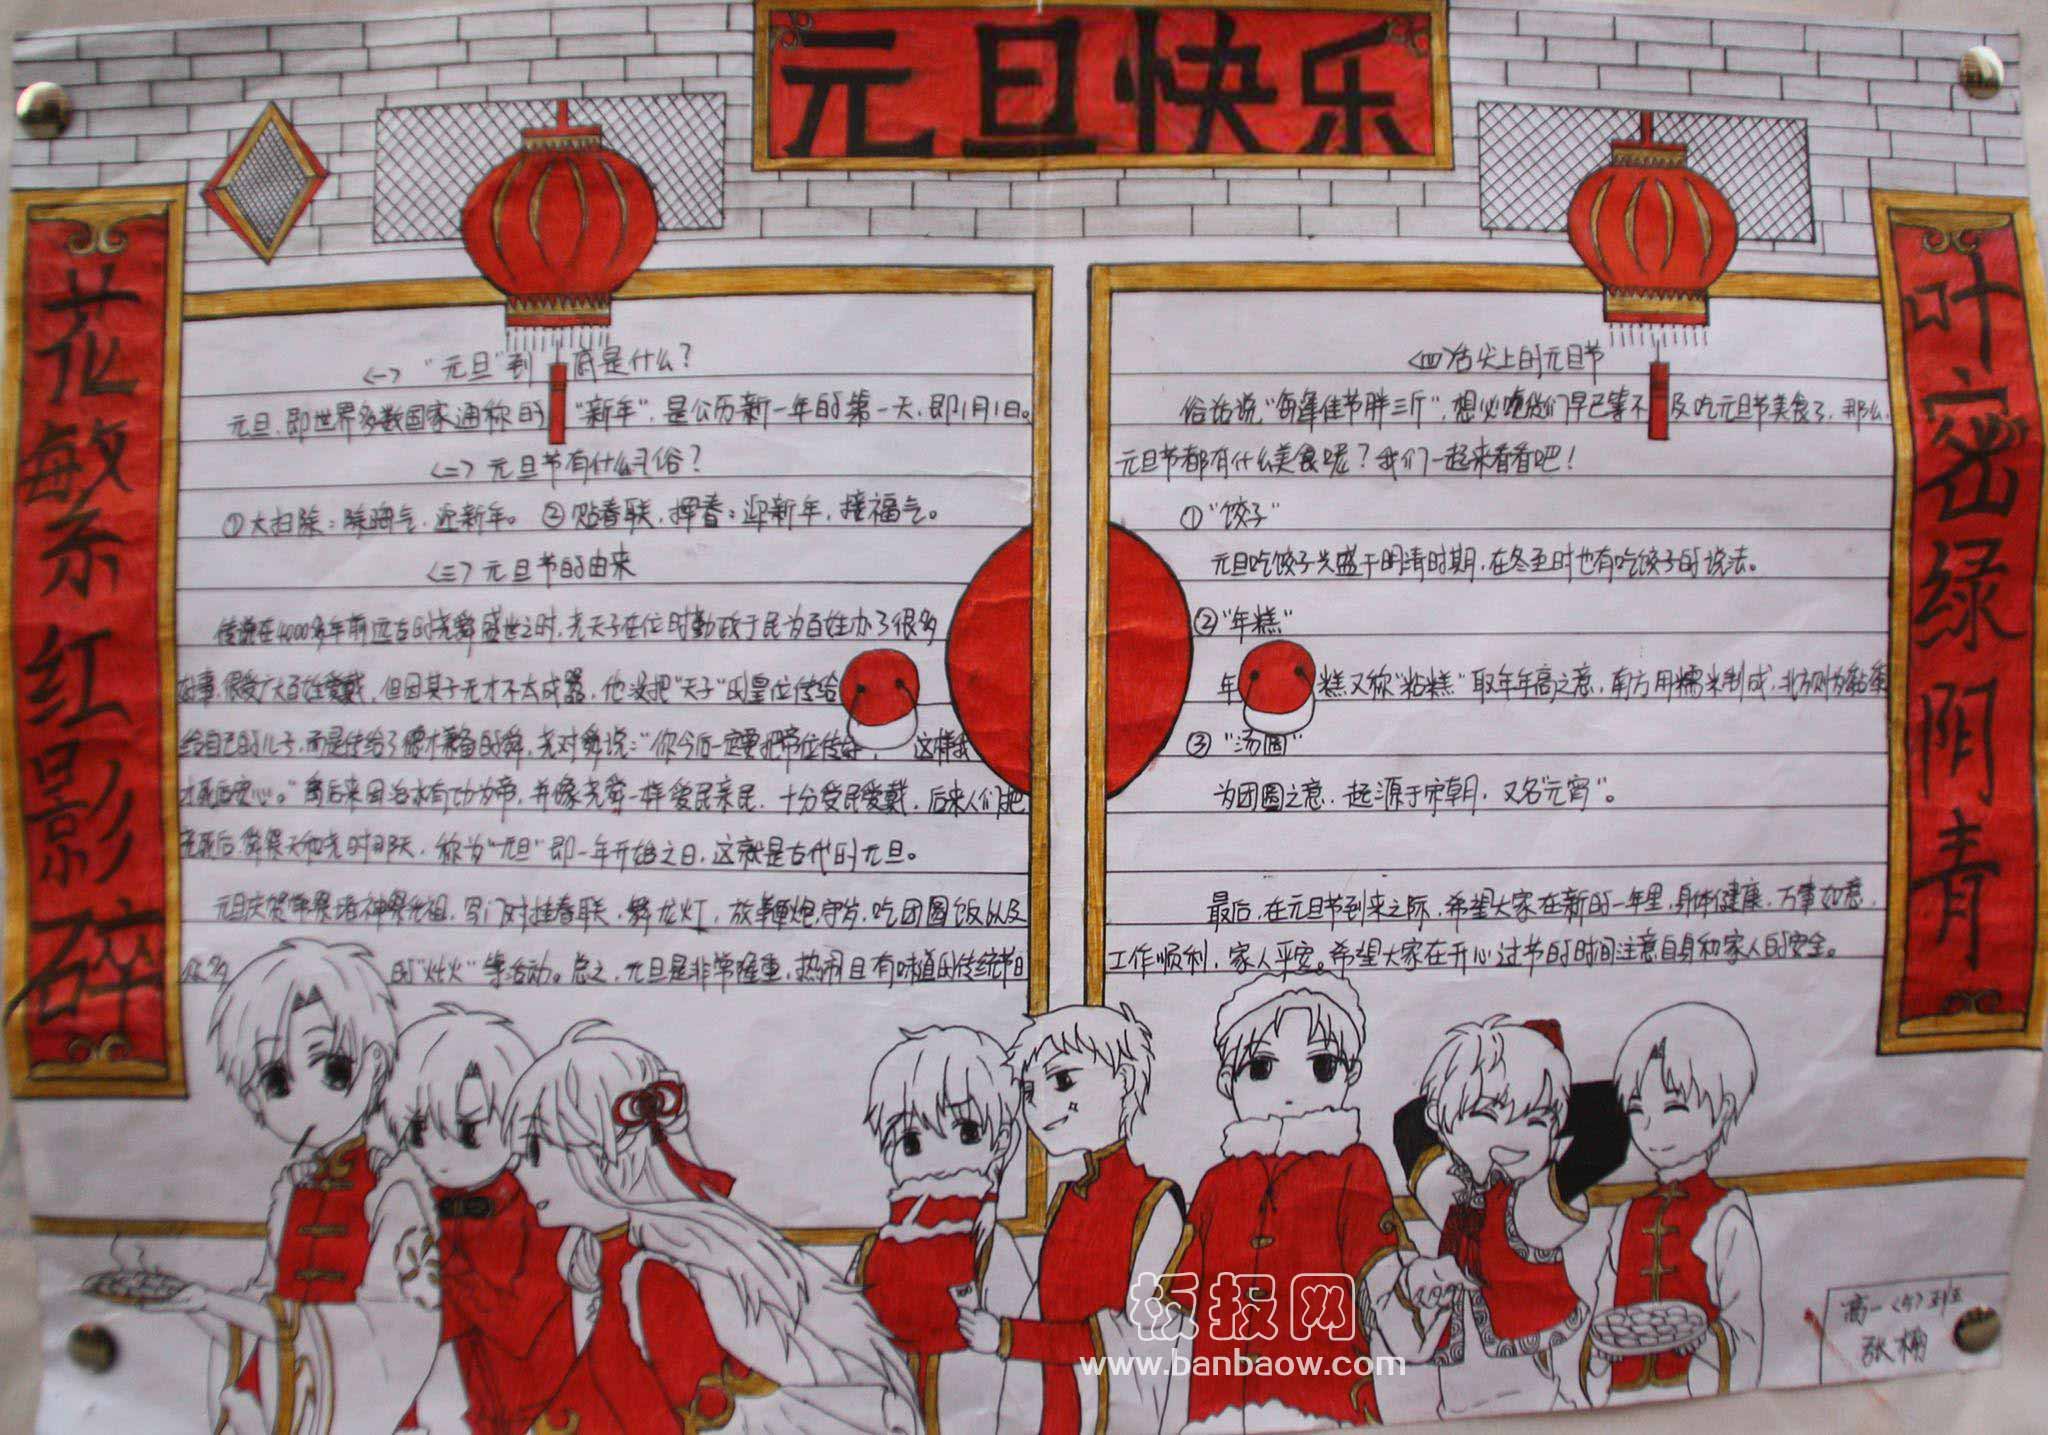 元旦快乐
花繁红影碎
叶密绿阴青
<一> "元旦"到底是什么?
元旦,即世界多数国家通称的"新年",是公历新一年的第一天,即1月1日。
<二> 元旦节有什么习俗?
①大扫除:除晦气,迎新年。 ②贴春联,挥春:迎新年,接福气。
<三> 元旦节的由来
传说在4000多年前远古的尧舜盛世之时,尧天子在位时勤政于民为百姓办了很多
好事,很受广大百姓爱戴,但因其子无才不太成器,他没把"天子"的皇位传给
给自己的儿子,而是传给了德才兼备的舜,尧对舜说:"你今后一定要把帝位传好, 这样我
才死后安心。"禹后来因治水有功为帝,并像尧舜一样爱民亲民,十分受民爱戴,后来人们把
尧死后,舜祭天和尧时那天,称为"元旦"即一年开始之日,这就是古代的元旦。
元旦庆贺 祭诸神祭先祖,写门对挂春联,舞龙灯,放鞭炮,守岁,吃团圆饭以及
众多 的"社火"等活动。总之,元旦是非常隆重,热闹且有味道的传统节日
<四>舌尖上的元旦节
俗话说"每逢佳节胖三斤",想必吃货们早已等不及吃元旦节美食了,那么,
元旦节都有什么美食呢?我们一起来看看吧!
①"饺子"
元旦吃饺子兴盛于明清时期,在冬至时也有吃饺子的说法。
②"年糕"
年糕又称"粘糕"取年年高之意,南方用糯米制成,北方则为黏黍
③"汤圆"
为团圆之意,起源于宋朝,又名"元宵"。
最后,在元旦节到来之际,希望大家在新的一年里,身体健康,万事如意,
工作顺利,家人平安。希望大家在开心过节的时间注意自身和家人的安全。
高一<5>班
张楠
板报网
www.banbaow.com